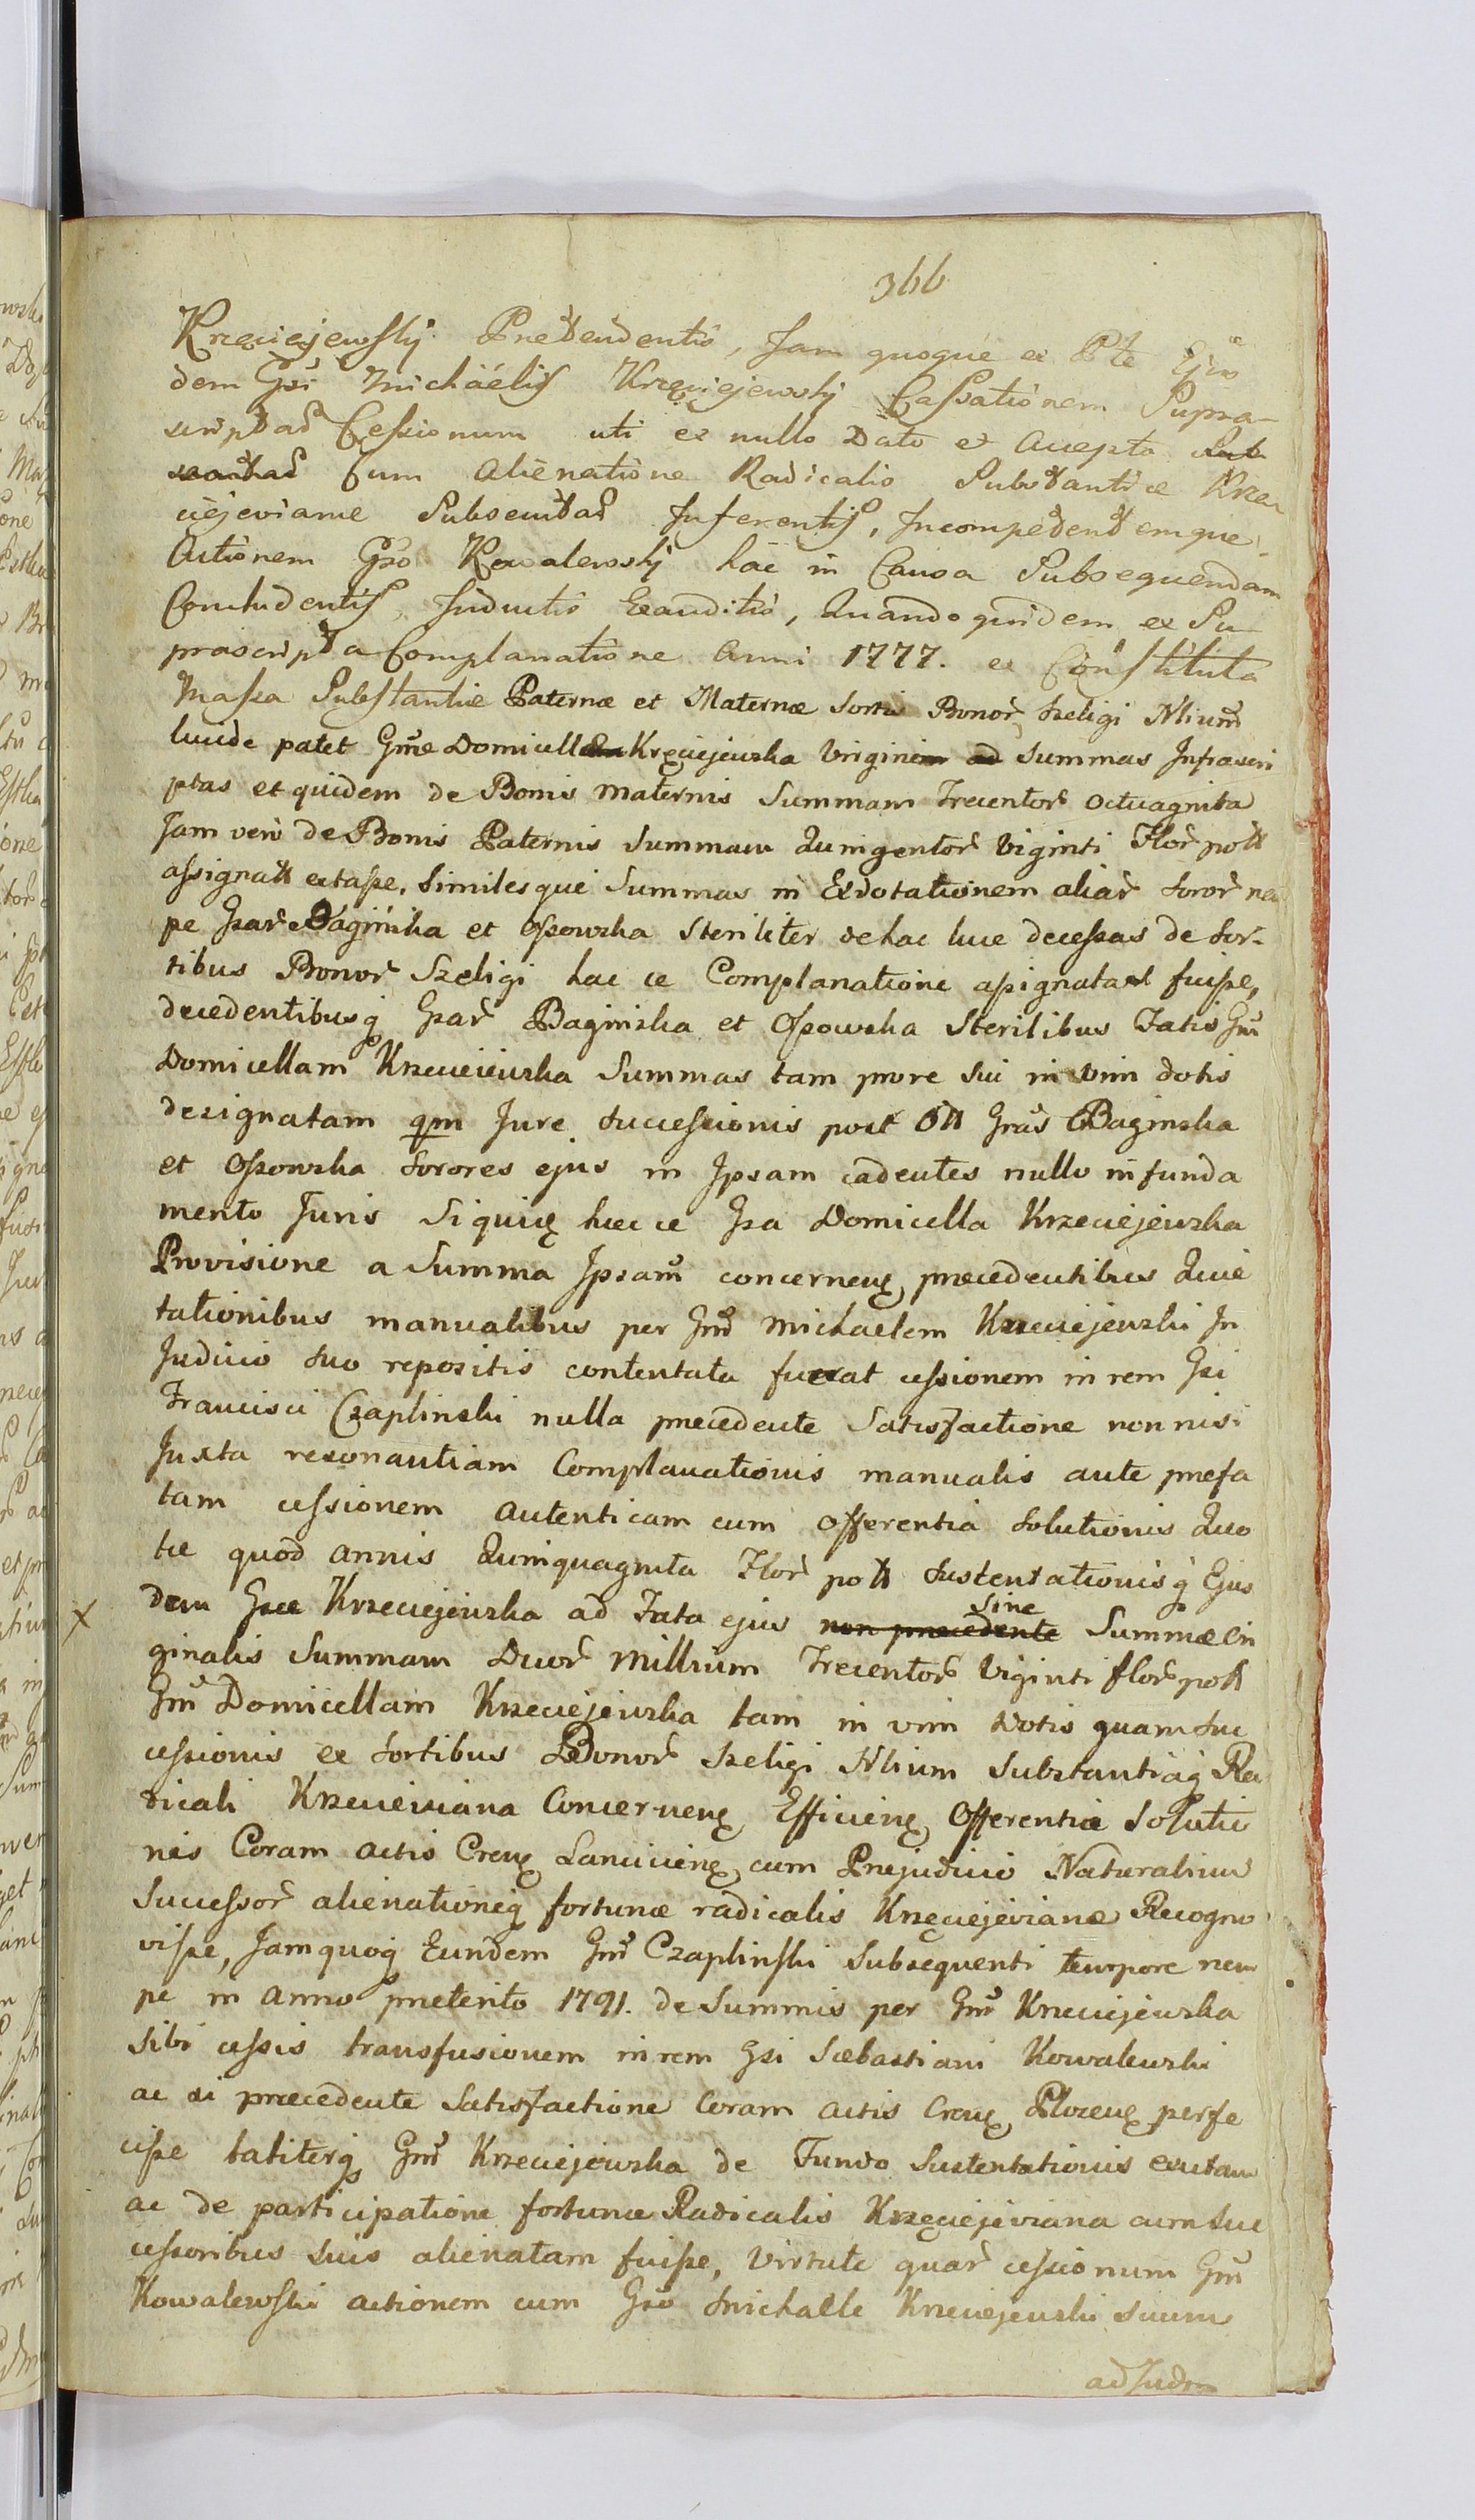 366
Krzęciejewskij Prætendentis, Jam quoque ex Pte Ejus
dem Gsi Michäelis Krzęciejewskij Cassationem Supra-
scriptaŕ Cessionum uti ex nullo Dato et Accepto Sub
secutaŕ Cum Alienatione Radicalis Substantiæ Krzeu
ciejevianæ Subsecutaŕ Inferentis, Incompetentemque
Actionem Gso Kowalewskij hac in Causa Subsequendam
Concludentis, Inductis Exauditis, Quandoquidem ex Su
prascripta Complanatione Anni 1777. ex Constituta
Massa Substantiæ Paternæ et Maternæ Sortis Bonoŕ Szeligi Nlium
lucide patet Gnæ Domicellæ Kręciejewska Virginem ad Summas Infrascri
ptas et quidem de Bonis Maternis Summam Trecentoŕ Octuaginta
Jam vero de Bonis Paternis Summam Quingentoŕ Viginti Floŕ poll
assignatt extasse, Similesque Summas in Exdotationem aliaŕ Soroŕ nem
pe Gsaŕ Baginska et Ossowska Steriliter de hac luce decessas de Sor-
tibus Bonoŕ Szeligi hac ce Complanatione assignatas fuisse,
decedentibusq Gsaŕ Baginska et Ossowska Sterilibus Fatis Gm
Domicellam Krzeciejewska Summas tam prore sui in vim dotis
designatam qm Jure Successionis post oll Gnas Baginska
et Ossowska Sorores ejus in Ipsam cadentes nullo in funda
mento Juris Siquidę hæc ce Gsa Domicella Krzeciejewska
Provisione a Summa Ipsam concerneñ, præcedentibus Quie
tationibus manualibus per Gm Michaelem Krzeciejewski In
Judicio suo repositis contentata fuerat cessionem in rem Gsi
Francisci Czaplinski nulla præcedente Satisfactione non nisi
Juxta resonantiam Complanationis manualis ante præfa
tam cessionem autenticam cum offerentia Solutionis Quo
tæ quod annis Quinquaginta Floŕ poll Sustentationisq Ejus
dem Gsæ Krzeciejewska ad Fata ejus non præcedente Sine Summæ ori
ginalis Summam Duoŕ Millium Trecentoŕ Viginti floŕ poll
Gm Domicellam Krzeciejewska tam in vim Dotis quam Suc
cessionis ex Sortibus Bonoŕ Szeligi Nlium Substantiaq Ra
dicali Krzeceiviana Concerneñ, Efficieñ, Offerentiæ Solutio
nis Coram Actis Creñ Lanciceñ, cum Præjudicio Naturalium
Successoŕ alienationeq fortunæ radicalis Krzęciejevianæ Recogno
visse, Jamquoq Eundem Gm Czaplinski Subsequenti tempore nem
pe in anno præterito 1791. de Summis per Gm Krzeciejewska
Sibi cessis transfusionem in rem Gsi Sæbastiani Kowalewski
ac si præcedente Satisfactione Coram actis Creñ Ploceñ perfe
cisse taliterq Gm Krzeciejewska de Fundo Sustentationis exutam
ac de participatione fortunæ Radicalis Krzęciejeviana cum Suc
cessoribus Suis alienatam fuisse, Virtute quaŕ cessionum Gm
Kowalewski actionem cum Gso Michaele Krzeciejewski Suum
ad Judm